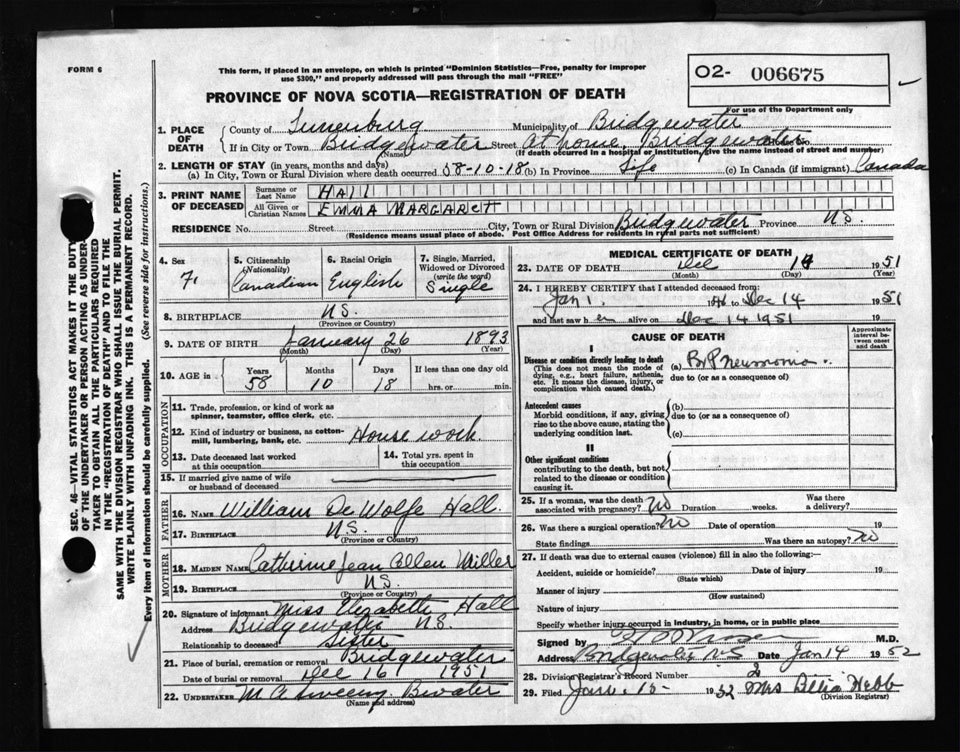 FORM 6
This form, if placed in an envelope, on which is printed "Dominion Statistics—Free, penalty for improper
use $300," and properly addressed will pass through the mail "FREE"
O2- 006675
For use of the Department only
PROVINCE OF NOVA SCOTIA—REGISTRATION OF DEATH
1. PLACE OF DEATH
County of Lunenburg Municipality of Bridgewater
If in City or Town Bridgewater Street At home, Bridgewater House No.
(Name) (If death occurred in a hospital or institution, give the name instead of street and number)
2. LENGTH OF STAY (in years, months and days)
(a) In City, Town or Rural Division where death occurred 58-10-18 (b) In Province Life (c) In Canada (if immigrant) Canada
3. PRINT NAME OF DECEASED
Surname or Last Name HALL
All Given or Christian Names EMMA MARGARET
RESIDENCE No. Street City, Town or Rural Division Bridgewater Province N.S.
(Residence means usual place of abode. Post Office Address for residents in rural parts not sufficient)
4. Sex F.
5. Citizenship (Nationality) Canadian
6. Racial Origin English
7. Single, Married, Widowed or Divorced (write the word) Single
8. BIRTHPLACE N.S.
(Province or Country)
9. DATE OF BIRTH January 26 1893
(Month) (Day) (Year)
10. AGE in Years 58 Months 10 Days 18 If less than one day old hrs. or min.
OCCUPATION
11. Trade, profession, or kind of work as spinner, teamster, office clerk, etc.
12. Kind of industry or business, as cotton-mill, lumbering, bank, etc. House work.
13. Date deceased last worked at this occupation
14. Total yrs. spent in this occupation
15. If married give name of wife or husband of deceased
FATHER
16. NAME William De Wolfe Hall.
17. BIRTHPLACE N.S.
(Province or Country)
MOTHER
18. MAIDEN NAME Catherine Jean Miller
19. BIRTHPLACE N.S.
(Province or Country)
20. Signature of informant Miss Elizabeth Hall
Address Bridgewater N.S.
Relationship to deceased Sister
21. Place of burial, cremation or removal Bridgewater
Date of burial or removal Dec 16 1951
22. UNDERTAKER B'water
(Name and address)
MEDICAL CERTIFICATE OF DEATH
23. DATE OF DEATH Dec 14 1951
(Month) (Day) (Year)
24. I HEREBY CERTIFY that I attended deceased from:
Jan 1. 19 to Dec 14 1951
and last saw her alive on Dec 14 1951 19
CAUSE OF DEATH
Approximate interval between onset and death
I
Disease or condition directly leading to death
(This does not mean the mode of dying, e.g., heart failure, asthenia, etc. It means the disease, injury, or complication which caused death.)
(a) Br Pneumonia.
due to (or as a consequence of)
Antecedent causes
Morbid conditions, if any, giving rise to the above cause, stating the underlying condition last.
(b)
due to (or as a consequence of)
(c)
II
Other significant conditions
contributing to the death, but not related to the disease or condition causing it.
25. If a woman, was the death associated with pregnancy? No Duration weeks. Was there a delivery?
26. Was there a surgical operation? No Date of operation 19
State findings Was there an autopsy? No
27. If death was due to external causes (violence) fill in also the following:—
Accident, suicide or homicide? Date of injury 19
(State which)
Manner of injury
(How sustained)
Nature of injury
Specify whether injury occurred in industry, in home, or in public place
Signed by M.D.
Address Bridgewater N S Date Jan 14 1952
28. Division Registrar's Record Number 2
29. Filed Jan. 15- 1952 Mrs Webb
(Division Registrar)
SEC. 46—VITAL STATISTICS ACT MAKES IT THE DUTY
OF THE UNDERTAKER OR PERSON ACTING AS UNDER-
TAKER TO OBTAIN ALL THE PARTICULARS REQUIRED
IN THE "REGISTRATION OF DEATH" AND TO FILE THE
SAME WITH THE DIVISION REGISTRAR WHO SHALL ISSUE THE BURIAL PERMIT.
WRITE PLAINLY WITH UNFADING INK. THIS IS A PERMANENT RECORD.
Every item of information should be carefully supplied. (See reverse side for instructions.)